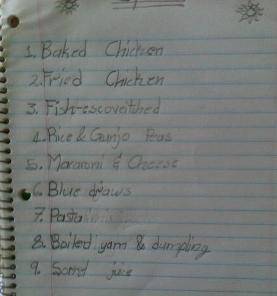 1. Baked Chicken
2. Fried Chicken
3. Fish-escoveitched
4. Rice & Gunjo Peas
5. Mararoni & Cheese
6. Blue draws
7. Pasta
8. Boiled yam & dumpling
9. juice